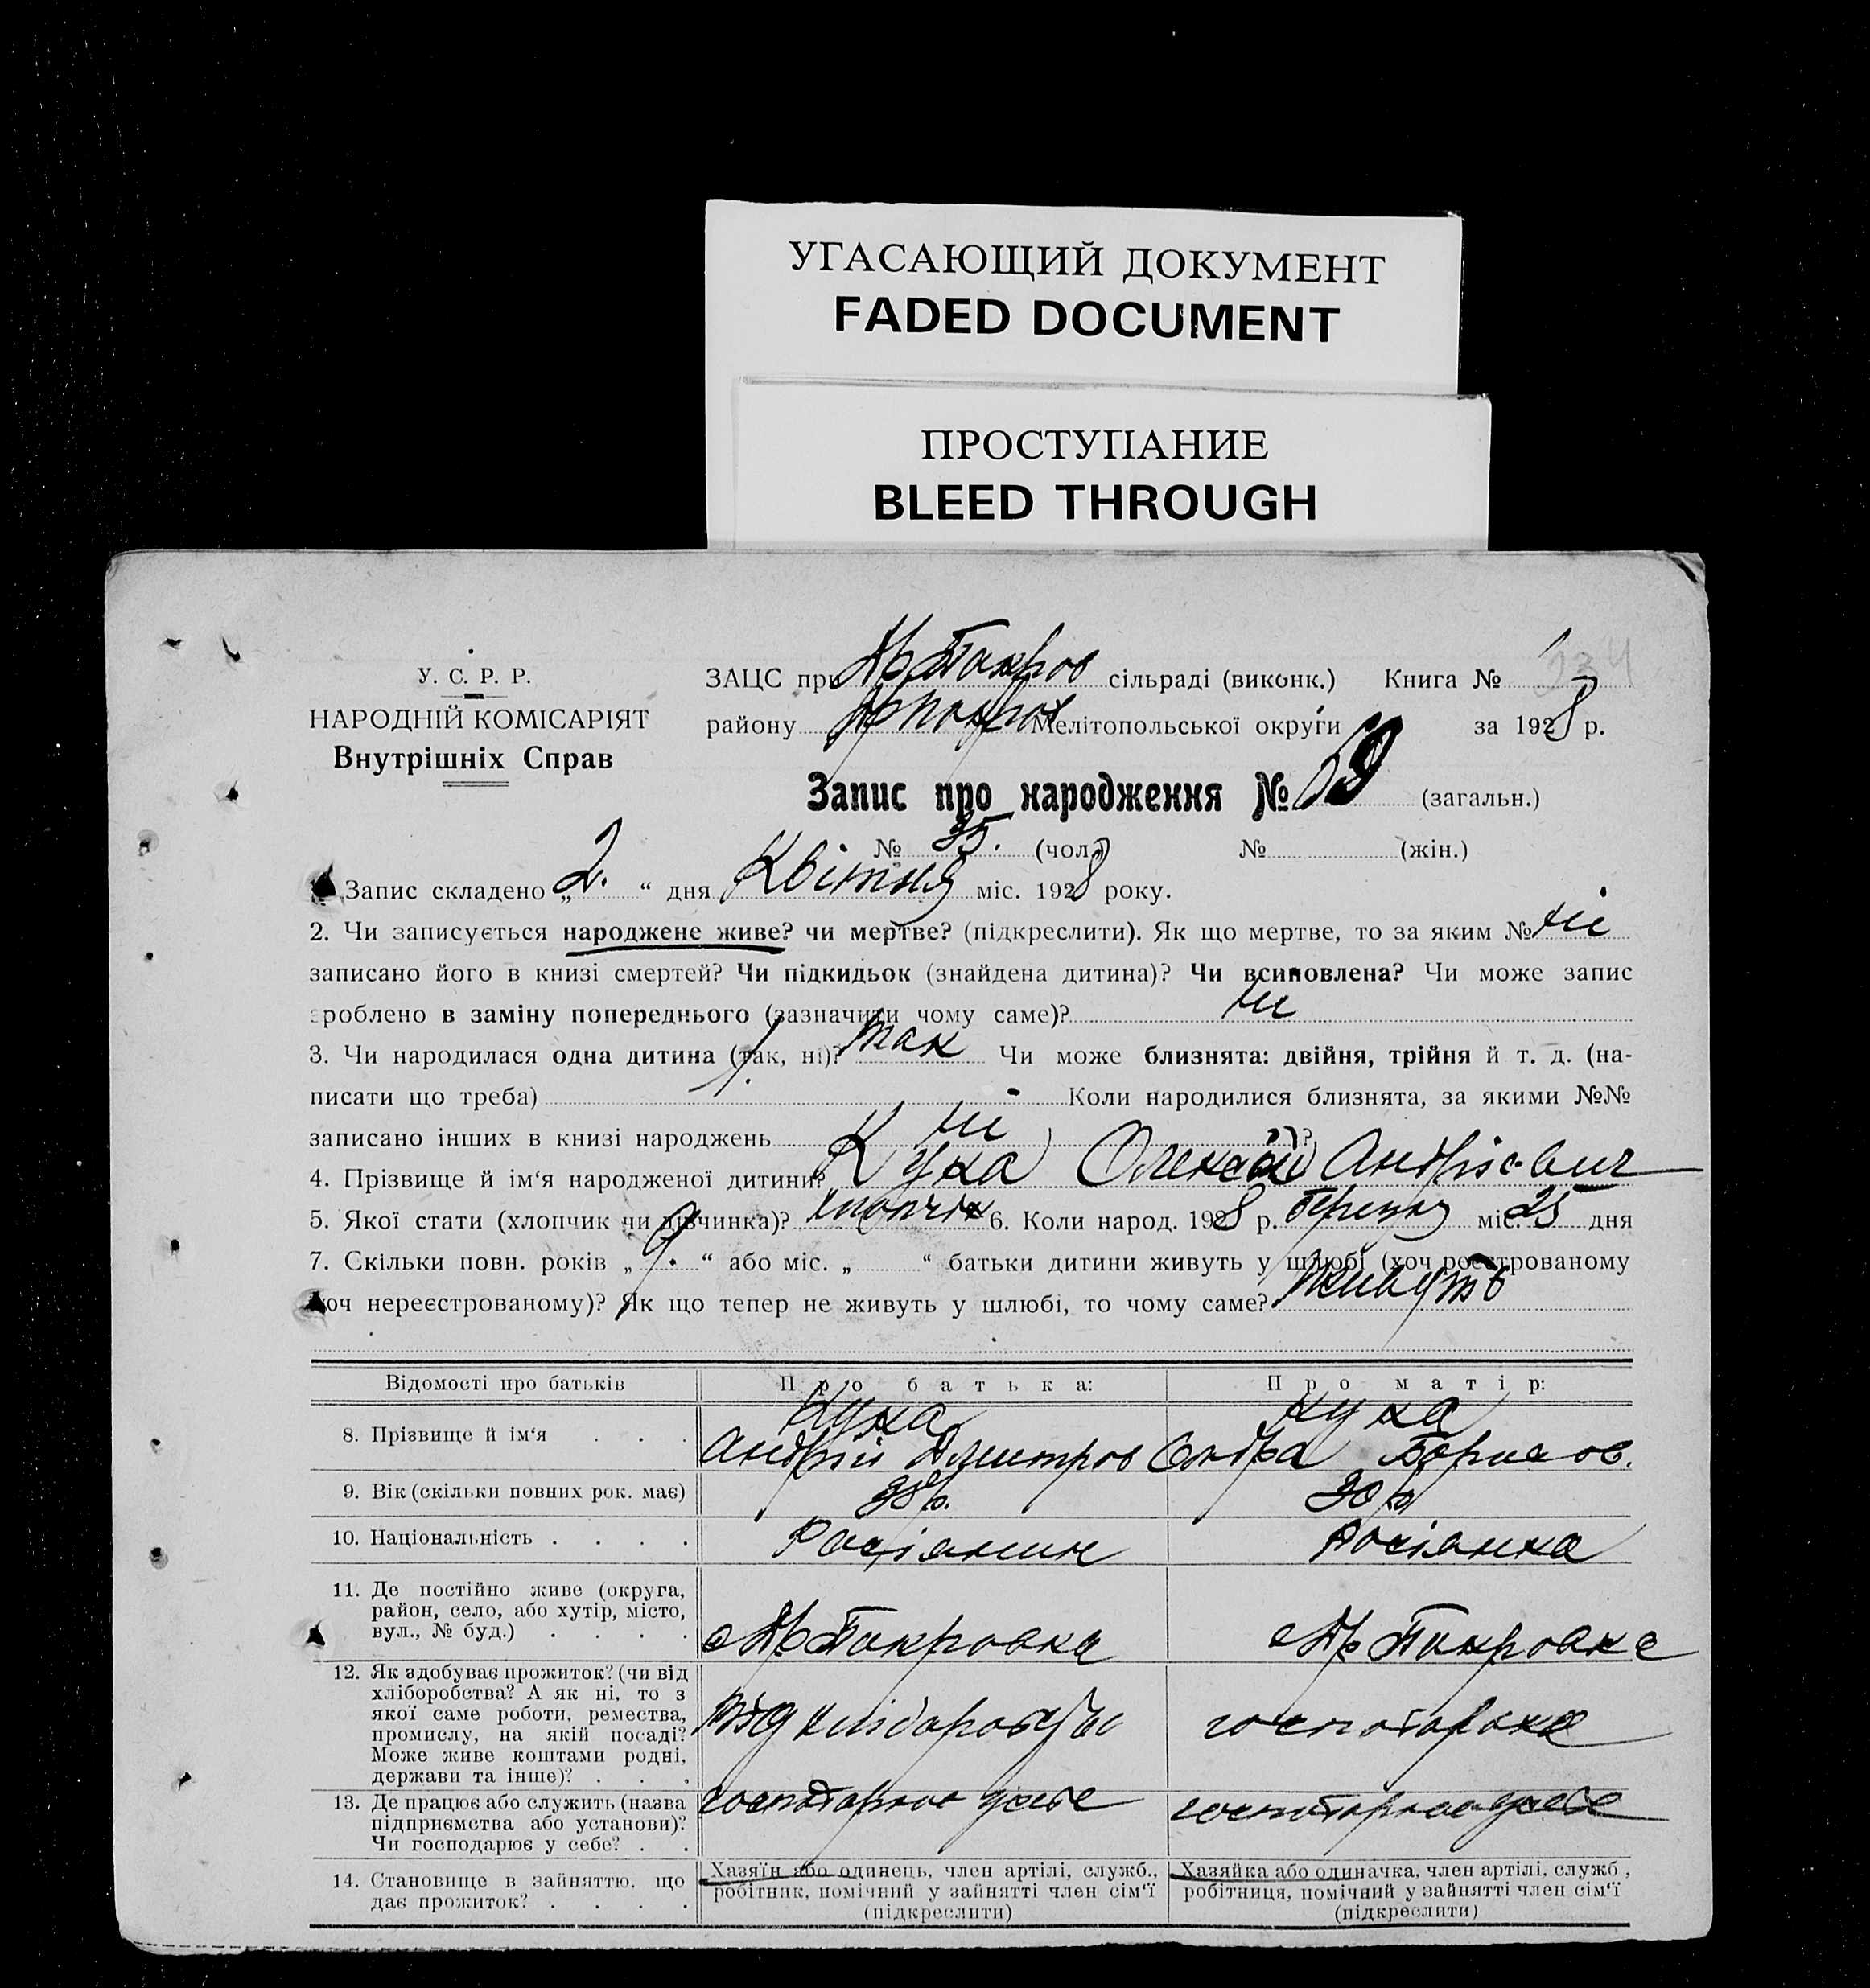 УГАСАЮЩИЙ ДОКУМЕНТ
FADED DOCUMENT
ПРОСТУПАНИЕ
BLEED THROUGH
У. С. Р. Р.
НАРОДНІЙ КОМІСАРІЯТ
Внутрішніх Справ
ЗАЦС при Нв Покров сільраді (виконк.) Книга № 234
району Мелітопольської округи за 1928 р.
Запис про народження № 69 (загальн.)
№ 35. (чол.) № (жін.)
Запис складено „2.“ дня Квітня міс. 1928 року.
2. Чи записується народжене живе? чи мертве? (підкреслити). Як що мертве, то за яким № ні
записано його в книзі смертей? Чи підкидьок (знайдена дитина)? Чи всиновлена? Чи може запис
зроблено в заміну попереднього (зазначити чому саме)? ні
3. Чи народилася одна дитина (так, ні)? так Чи може близнята: двійня, трійня й т. д. (на-
писати що треба) Коли народилися близнята, за якими №№
записано інших в книзі народжень ні ?
4. Прізвище й ім‘я народженої дитини? Кука Олексій Андрієвич
5. Якої стати (хлопчик чи дівчинка)? хлопчік 6. Коли народ. 1928 р. березня міс. 25 дня
7. Скільки повн. років „9.“ або міс. „ “ батьки дитини живуть у шлюбі (хоч реєстрованому
хоч нереєстрованому)? Як що тепер не живуть у шлюбі, то чому саме? живуть
Відомості про батьків Про батька: Про матір:
8. Прізвище й ім‘я . . . Кука Андрій Дмитров Кука Борисов.
9. Вік (скільки повних рок. має) 38р. 30р
10. Національність . . . . Росіянин Росіянка
11. Де постійно живе (округа,
район, село, або хутір, місто,
вул., № буд.) . . . . с Нв Покровка с Нв Покровка
12. Як здобуває прожиток? (чи від
хліборобства? А як ні, то з
якої саме роботи, ремества,
промислу, на якій посаді?
Може живе коштами родні,
держави та інше)? . . . від господарка
13. Де працює або служить (назва
підприємства або установи)?
Чи господарює у себе? . .
14. Становище в зайняттю, що
дає прожиток? . . . .
Хазяїн або одинець, член артілі, служб.,
робітник, помічний у зайнятті член сім‘ї
(підкреслити)
Хазяйка або одиначка, член артілі, служб,
робітниця, помічний у зайнятті член сім‘ї
(підкреслити)